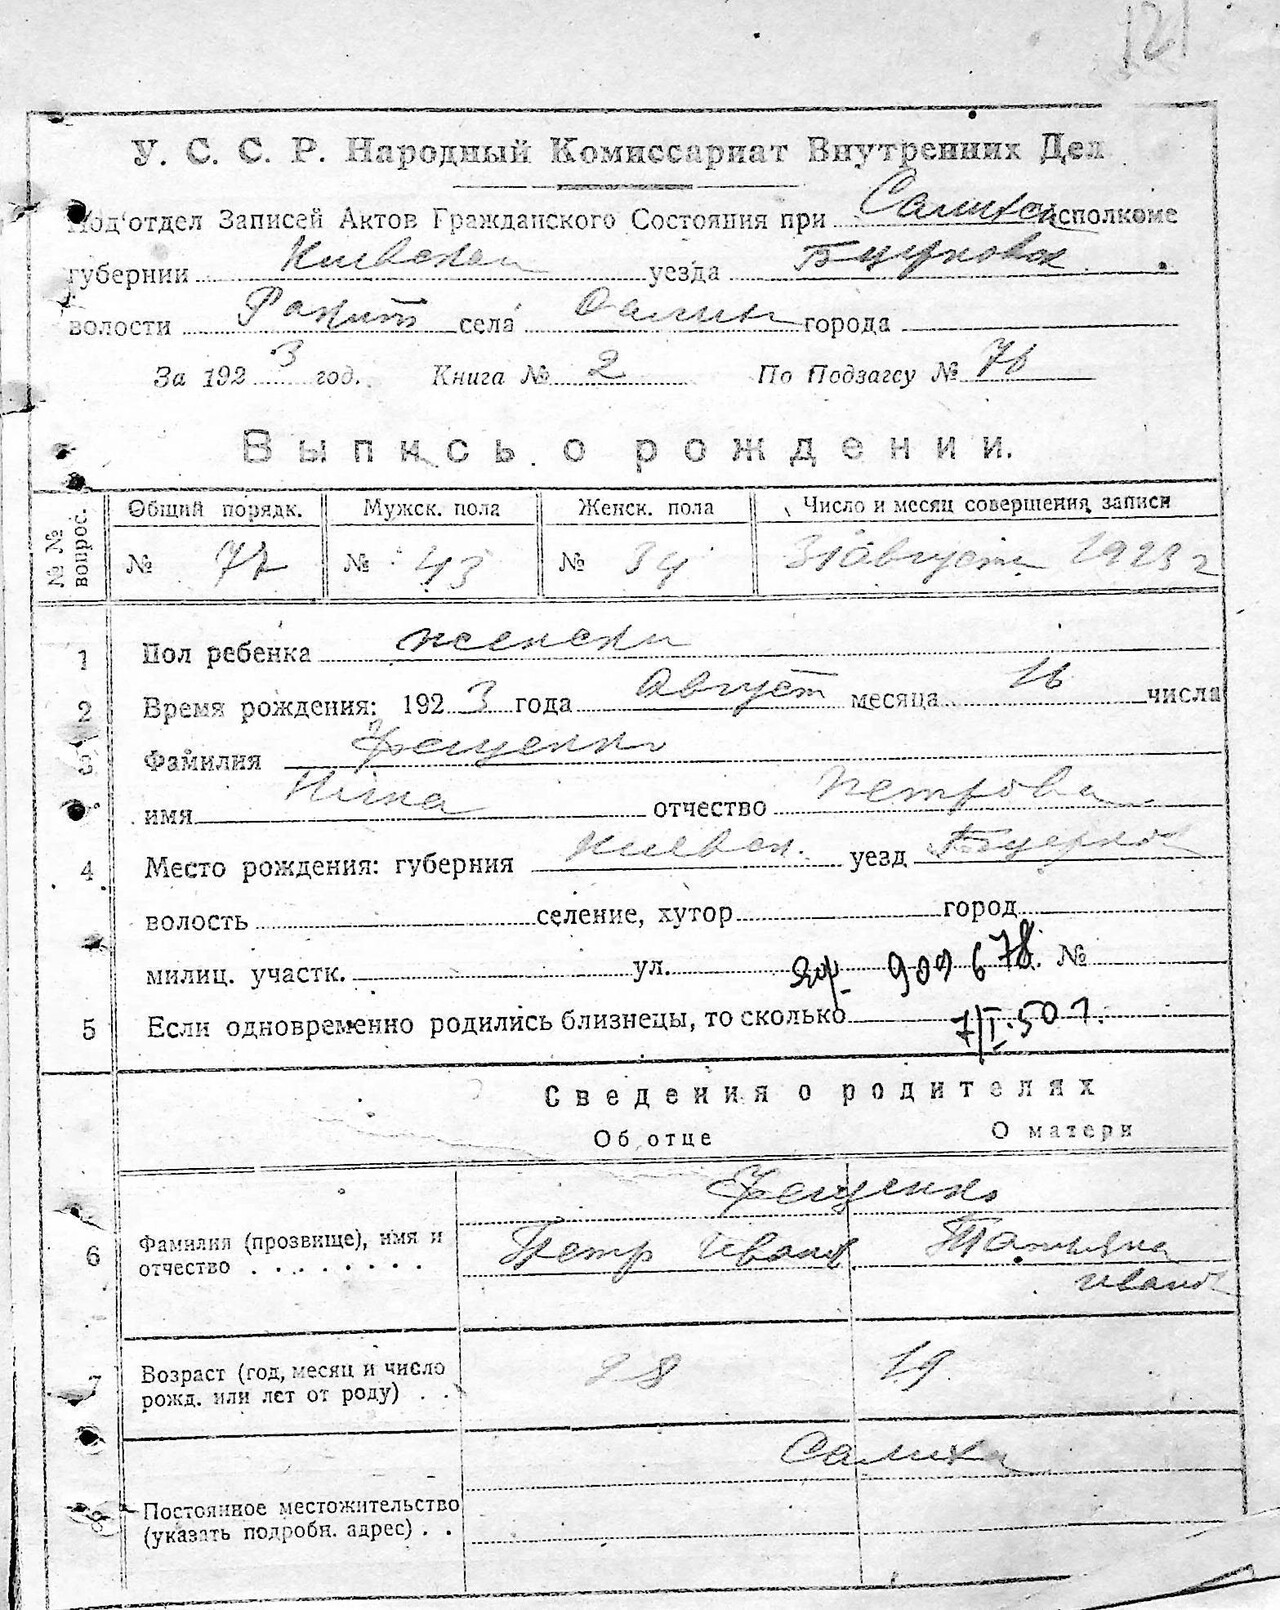 121
У. С. С. Р. Народный Комиссариат Внутренних Дел
Под'отдел Записей Актов Гражданского Состояния при исполкоме
губернии Киевской уезда Бцерковск
волости Ракит села Салиха города
За 1923 год. Книга № 2 По Подзагсу № 76
Выпись о рождении.
№ № вопрос.
Общий порядк. Мужск. пола Женск. пола Число и месяц совершения записи
№ 77 № 43 № 34 31 августа 1923 г
1 Пол ребенка женски
2 Время рождения: 1923 года Август месяца 16 числа
3 Фамилия Фещенко
имя Нина отчество Петрова
4 Место рождения: губерния Киевск. уезд Бцерков
волость селение, хутор город
милиц. участк. ул. 909678 №
5 Если одновременно родились близнецы, то сколько 7/I.50 г.
Сведения о родителях
Об отце О матери
Фещенко
6 Фамилия (прозвище), имя и Петр Иванов Татьяна
отчество . . . . . . . . Иванов
7 Возраст (год, месяц и число 28 19
рожд. или лет от роду) . .
Салиха
8 Постоянное местожительство
(указать подробн. адрес) . .